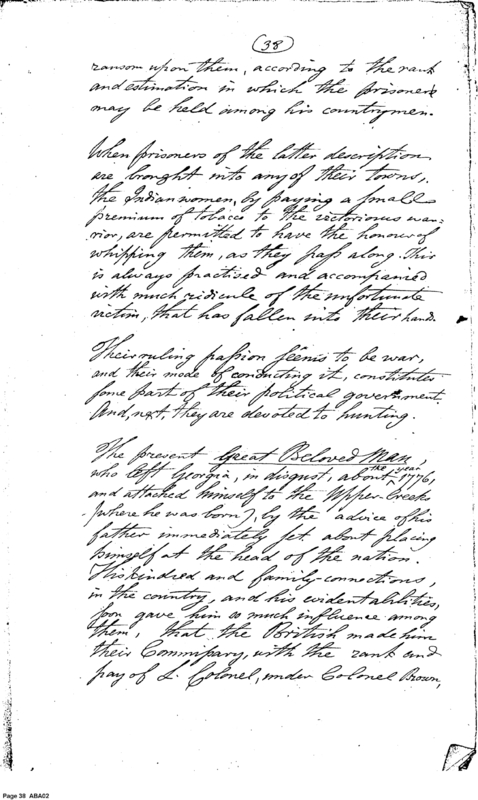 (38)
ransom upon them, according to the rank
and estimation in which the prisoners
may be held among his countrymen.
When prisoners of the latter description
are brought into any of their towns,
the Indian women, by paying a small
premium of tobaco to the victorious war-
rior, are permitted to have the honour of
whipping them, as they pass along. This
is always practised and accompanied
with much ridicule of the unfortunate
victim, that has fallen into their hands.
Their ruling passion seems to be war,
and their mode of conducting it, constitutes
some part of their political government.
And, next, they are devoted to hunting.
The present Great Beloved Man,
who left Georgia, in disgust, about the year 1776,
and attached himself to the Upper Creeks
(where he was born), by the advice of his
father immediately set about placing
himself at the head of the nation.
His kindred and family-connections,
in the country, and his evident abilities,
soon gave him so much influence among
them, that the British made him
their Commissary, with the rank and
pay of L. Colonel, under Colonel Brown,
Page 38 ABA02